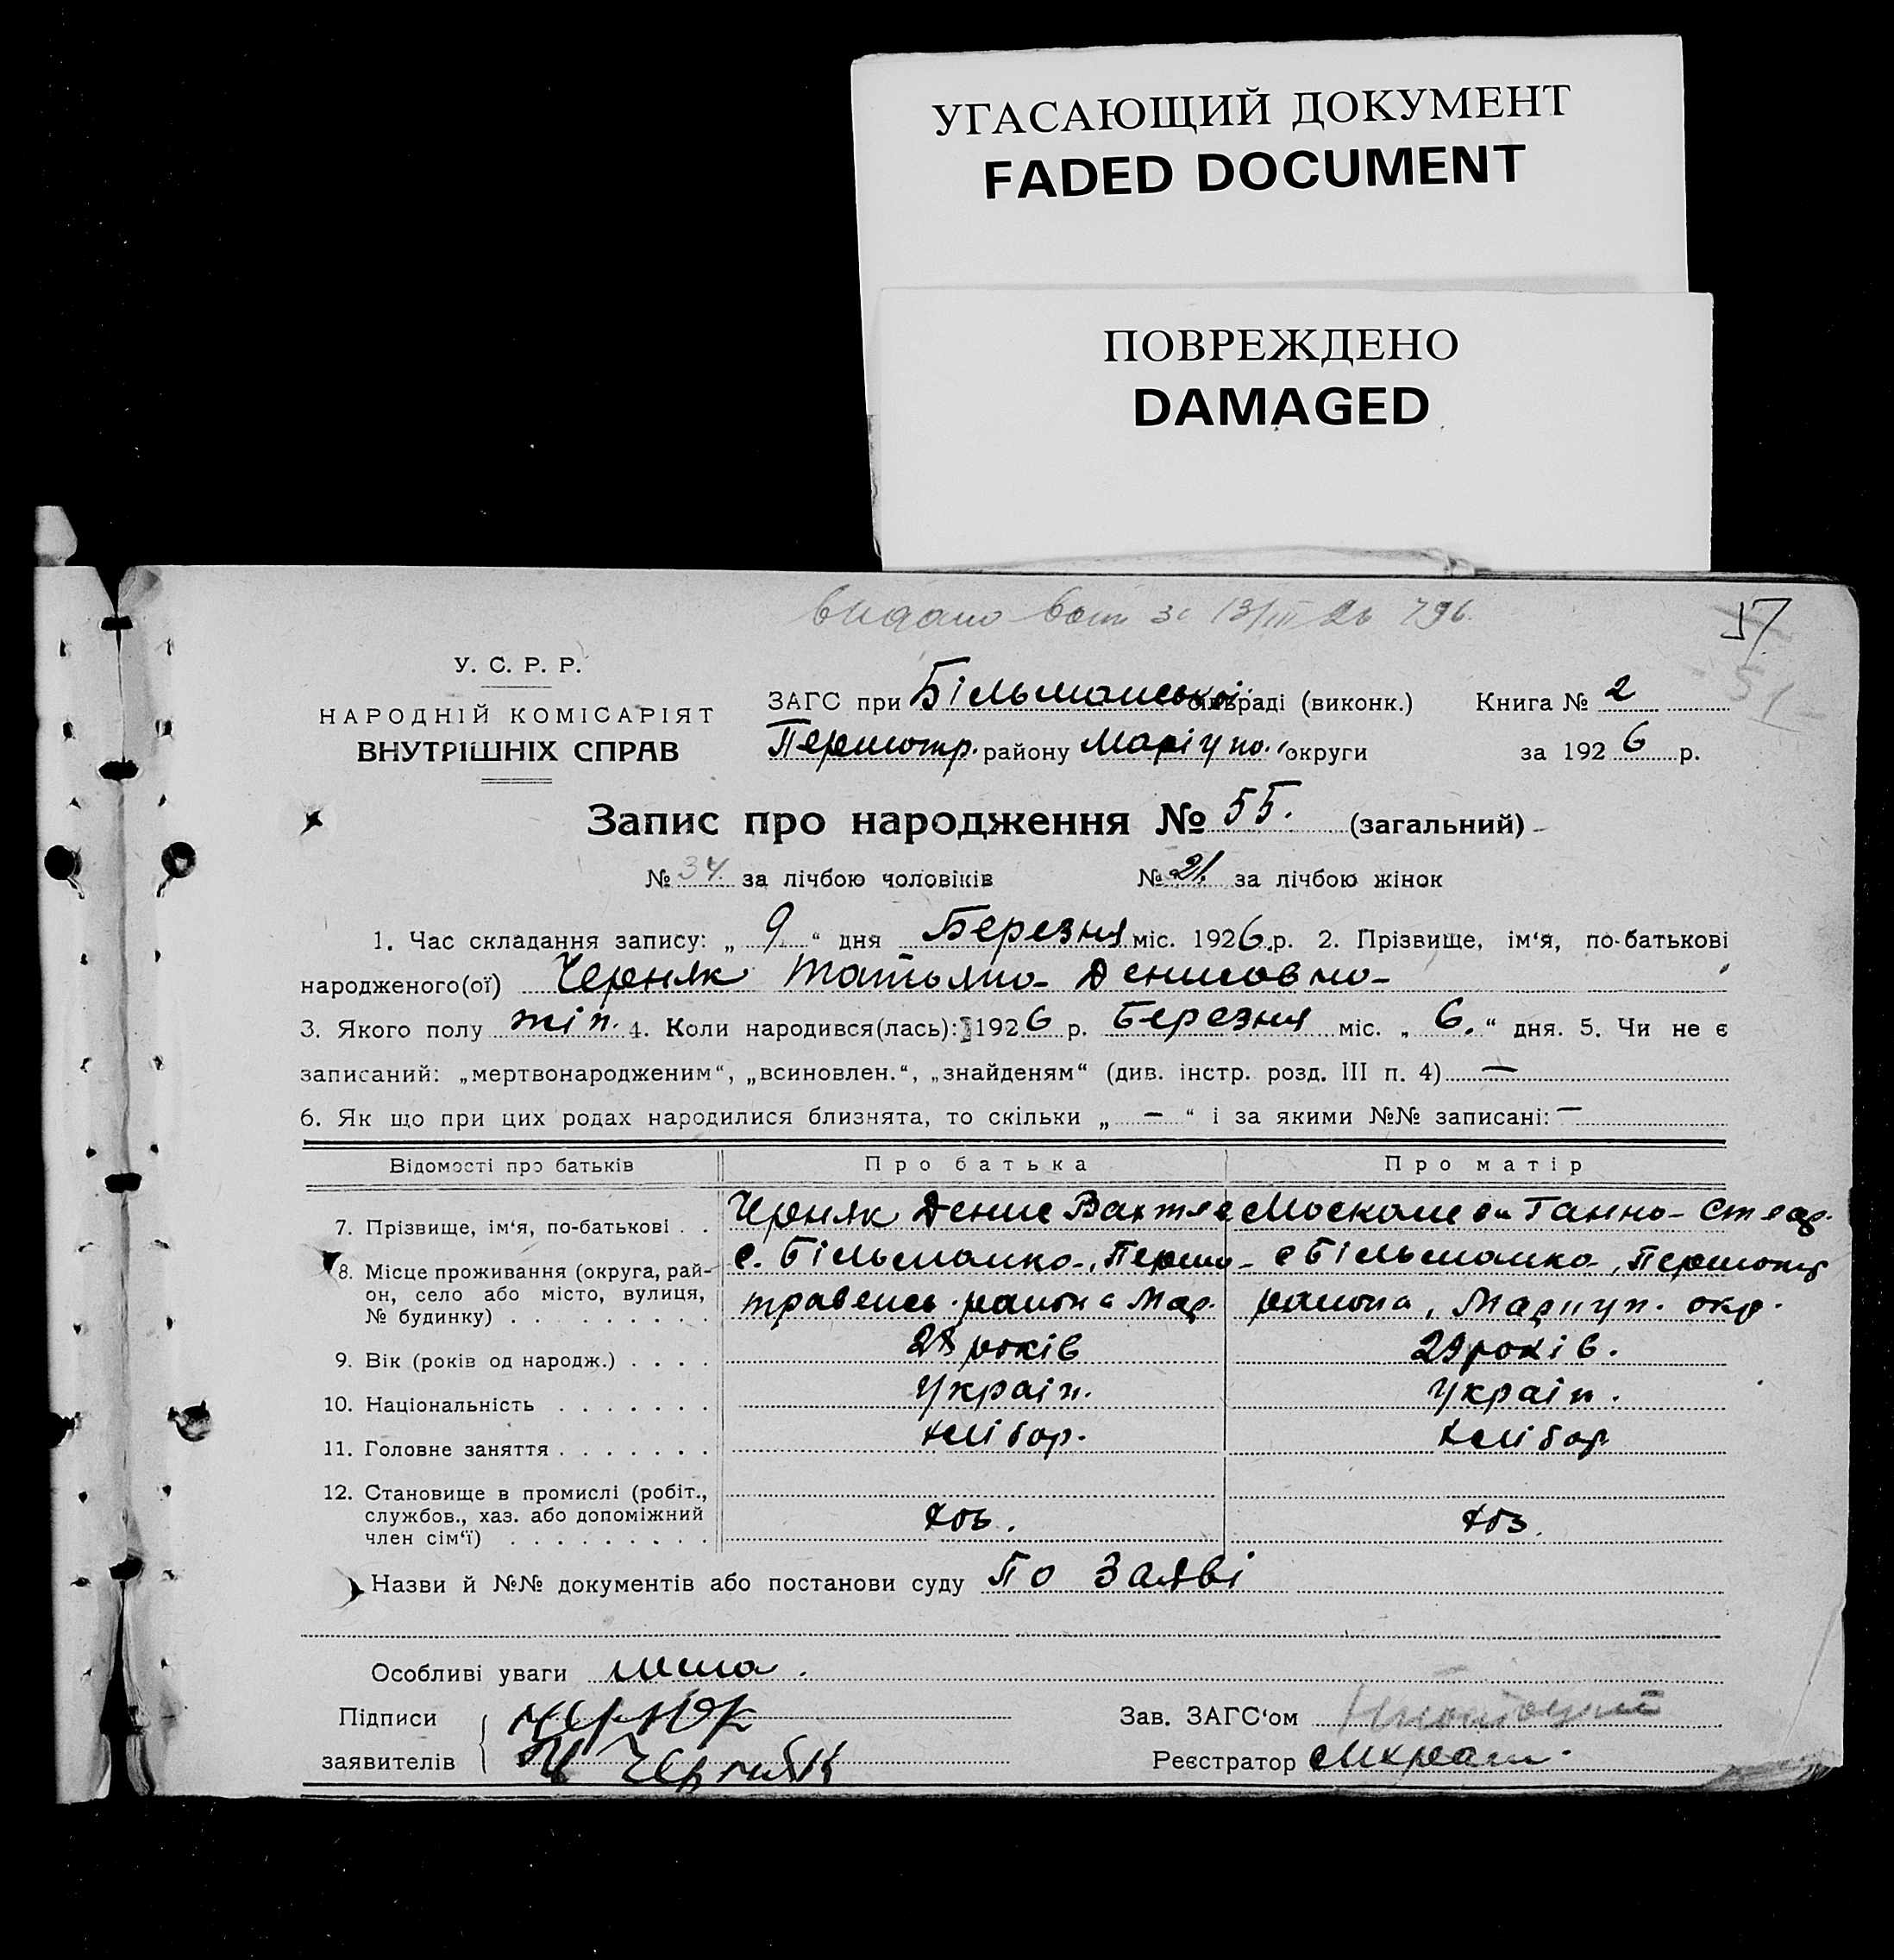 УГАСАЮЩИЙ ДОКУМЕНТ
FADED DOCUMENT
ПОВРЕЖДЕНО
DAMAGED
видано 13/III 26 796.
57
51
У. С. Р. Р.
НАРОДНІЙ КОМІСАРІЯТ
ВНУТРІШНІХ СПРАВ
ЗАГС при Більманській раді (виконк.) Книга № 2
Першотр. району Маріуп. округи за 1926 р.
Запис про народження № 55. (загальний)
№ 34 за лічбою чоловіків № 21. за лічбою жінок
1. Час складання запису: „ 9 “ дня Березня міс. 1926 р. 2. Прізвище, ім‘я, по-батькові
народженого(ої) Черняк Татьяна Денисовна
3. Якого полу жін. 4. Коли народився(лась): 1926 р. Березня міс. „ 6. “ дня. 5. Чи не є
записаний: „мертвонародженим“, „всиновлен.“, „знайденям“ (див. інстр. розд. III п. 4) —
6. Як що при цих родах народилися близнята, то скільки „ — “ і за якими №№ записані: —
Відомості про батьків Про батька Про матір
7. Прізвище, ім‘я, по-батькові . . Черняк Денис Ганна
8. Місце проживання (округа, рай- с. Більманка, Першо- с Більманка, Першотр
он, село або місто, вулиця, травенсь. района Мар. района, Мариуп. окр.
№ будинку) . . . . . . . . .
9. Вік (років од народж.) . . . . 28 років 29 років.
10. Національність . . . . . . . Україн. Україн.
11. Головне заняття . . . . . . . хлібор. хлібор
12. Становище в промислі (робіт.,
службов., хаз. або допоміжний хоз. хоз.
член сім‘ї) . . . . . . . . .
Назви й №№ документів або постанови суду По Заяві
Особливі уваги нима.
Підписи Черняк Зав. ЗАГС‘ом
заявителів Черняк Реєстратор